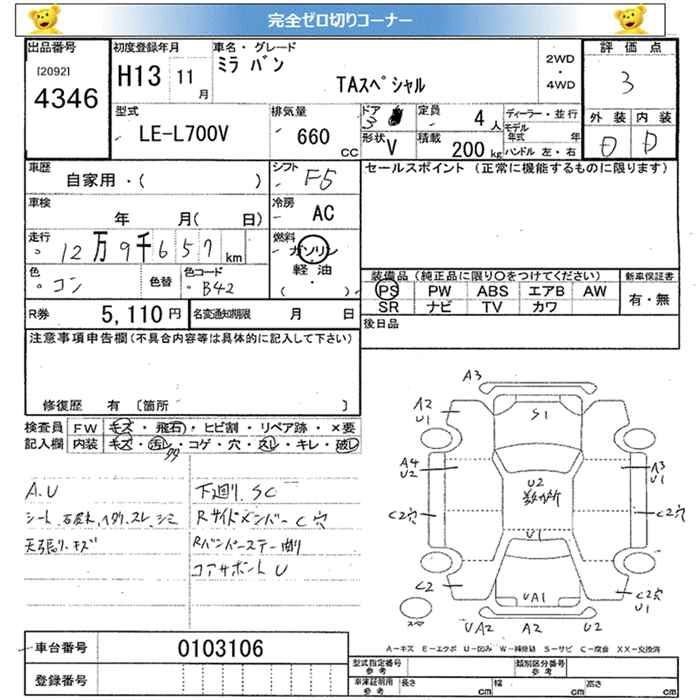 完全ゼロ切りコーナー
出品番号 初度登録年月 車名・グレード 2WD・4WD 評価点
[2092] 4346 H13 11月 ミラ バン TAスペシャル 3
型式 LE-L700V 排気量 660 CC
ドア 3 定員 4人 ディーラー・並行 外装 内装
形状 V 積載 200kg モデル年式 年 ハンドル 左・右 D D
車歴 自家用・( ) シフト F5 セールスポイント (正常に機能するものに限ります)
車検 年 月( 日) 冷房 AC
走行 12万9千657km 燃料 ガソリン・軽油 ( )
色 コン 色替 色コード B42 装備品 (純正品に限り○をつけてください) 新車保証書
PS PW ABS エアB AW 有・無
SR ナビ TV カワ
R券 5,110円 名変通知期限 月 日 後日品
注意事項申告欄(不具合内容等は具体的に記入して下さい)
修復歴 有 〔箇所 〕
検査員 FW キズ・飛石・ヒビ割・リペア跡・×要
記入欄 内装 キズ・汚レ・コゲ・穴・スレ・キレ・破レ
A.U 下廻り、SC
シート、 スレ、シミ RサイドメンバーC穴
天張り、キズ
コアサポートU
A3
A2 U1 S1
A4 U2 U2 A3 U1
C2穴 U1 C2穴
C2 UA1 C2穴 U1
UA2 A2 U2
車台番号 0103106 A-キズ E-エクボ U-凹み W-補修跡 S-サビ C-腐食 XX-交換済
登録番号 型式指定番号 参考 類別区分番号 参考
車庫証明用 参考 長さ cm 幅 cm 高さ cm